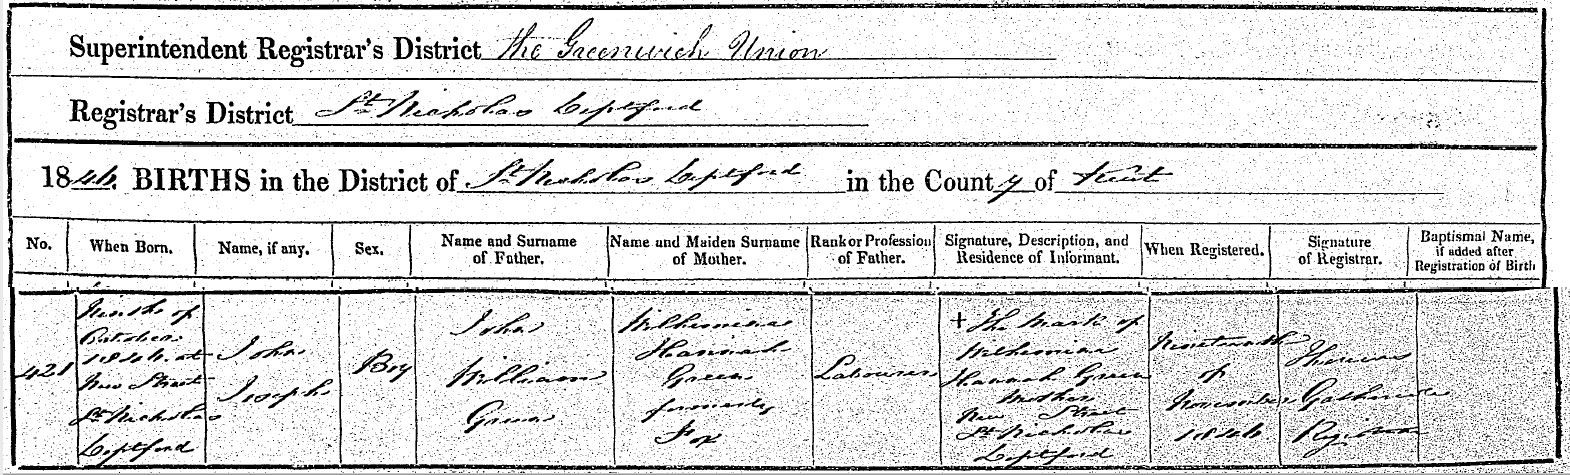 Superintendent Registrar's District the Greenwich Union
Registrar's District St. Nicholas Deptford
1846. BIRTHS in the District of St. Nicholas Deptford in the County of Kent
No. When Born. Name, if any. Sex. Name and Surname of Father. Name and Maiden Surname of Mother. Rank or Profession of Father. Signature, Description, and Residence of Informant. When Registered. Signature of Registrar. Baptismal Name, if added after Registration of Birth
421
Ninth of
October
1846 at
New Street
St. Nicholas
Deptford
John
Joseph
Boy
John
William
Green
Wilhemina
Hannah
Green
formerly
Fox
Labourer
+ The mark of
Wilhemina
Hannah Green
Mother
New Street
St. Nicholas
Deptford
Nineteenth
of
November
1846
Registrar